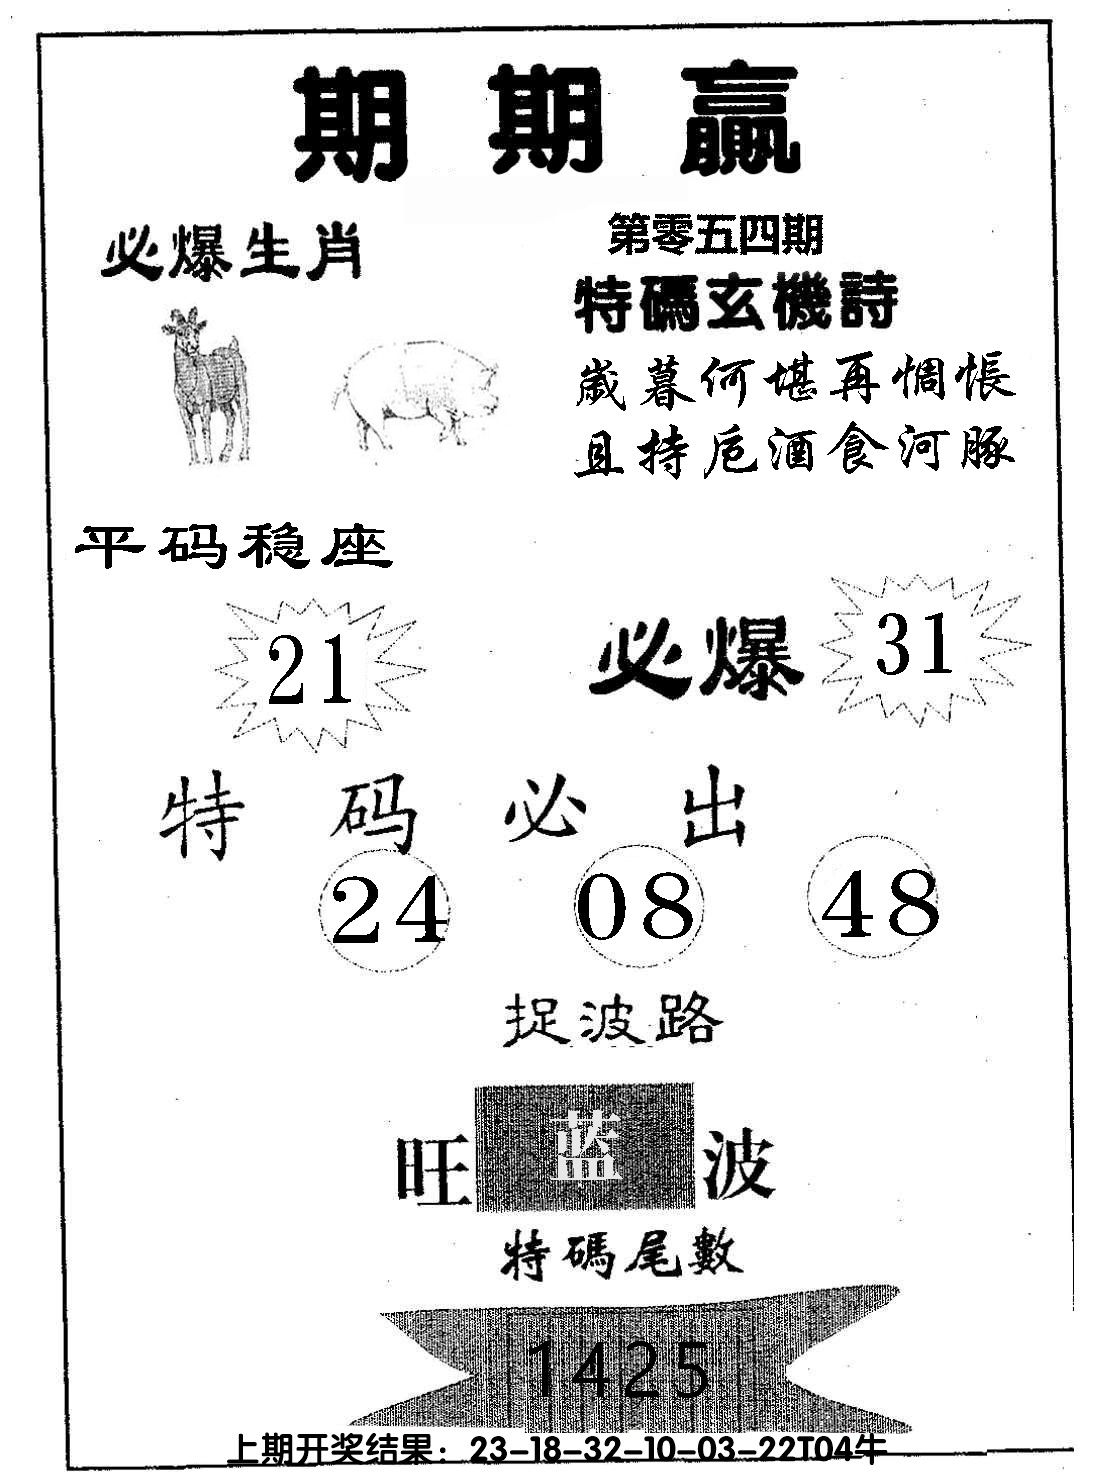 期期贏
必爆生肖
第零五四期
特碼玄機詩
歲暮何堪再惆悵
且持卮酒食河豚
平码稳座
21
必爆 31
特码必出
24 08 48
捉波路
旺蓝波
特碼尾數
1425
上期开奖结果：23-18-32-10-03-22T04牛